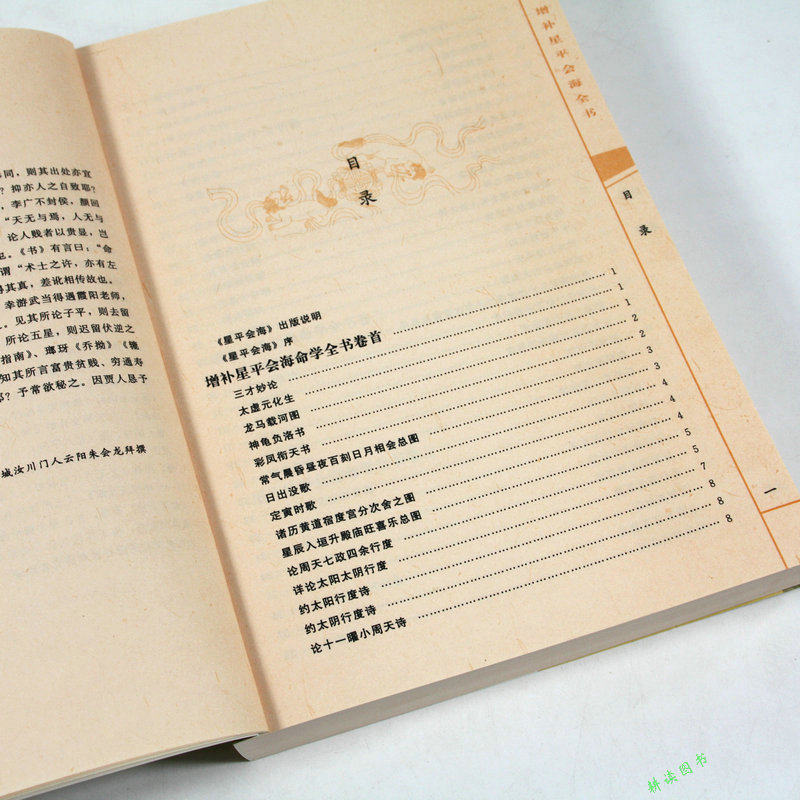 同，则其出处亦宜
？抑亦人之自致耶？
，李广不封侯，颜回
“天无与焉，人无与
论人贱者以贵显，岂
也。《书》有言曰：“命
谓“术士之许，亦有左
得其真，差讹相传故也。
幸游武当得遇霞阳老师，
。见其所论子平，则去留
所论五星，则迟留伏逆之
指南》、瑯玡《乔拗》《辘
知其所言富贵贫贱、穷通寿
耶？予常欲秘之。因贾人恳予
城汝川门人云阳朱会龙拜撰
增补星平会海全书
目录
一
目录
《星平会海》出版说明
《星平会海》序
增补星平会海命学全书卷首
三才妙论 1
太虚元化生 1
龙马载河图 2
神龟负洛书 2
彩凤衔天书 3
常气晨昏昼夜百刻日月相会总图 3
日出没歌 4
定寅时歌 4
诸历黄道宿度宫分次舍之图 4
星辰入垣升殿庙旺喜乐总图 5
论周天七政四余行度 5
详论太阳太阴行度 7
约太阳行度诗 8
约太阴行度诗 8
论十一曜小周天诗 8
耕读图书